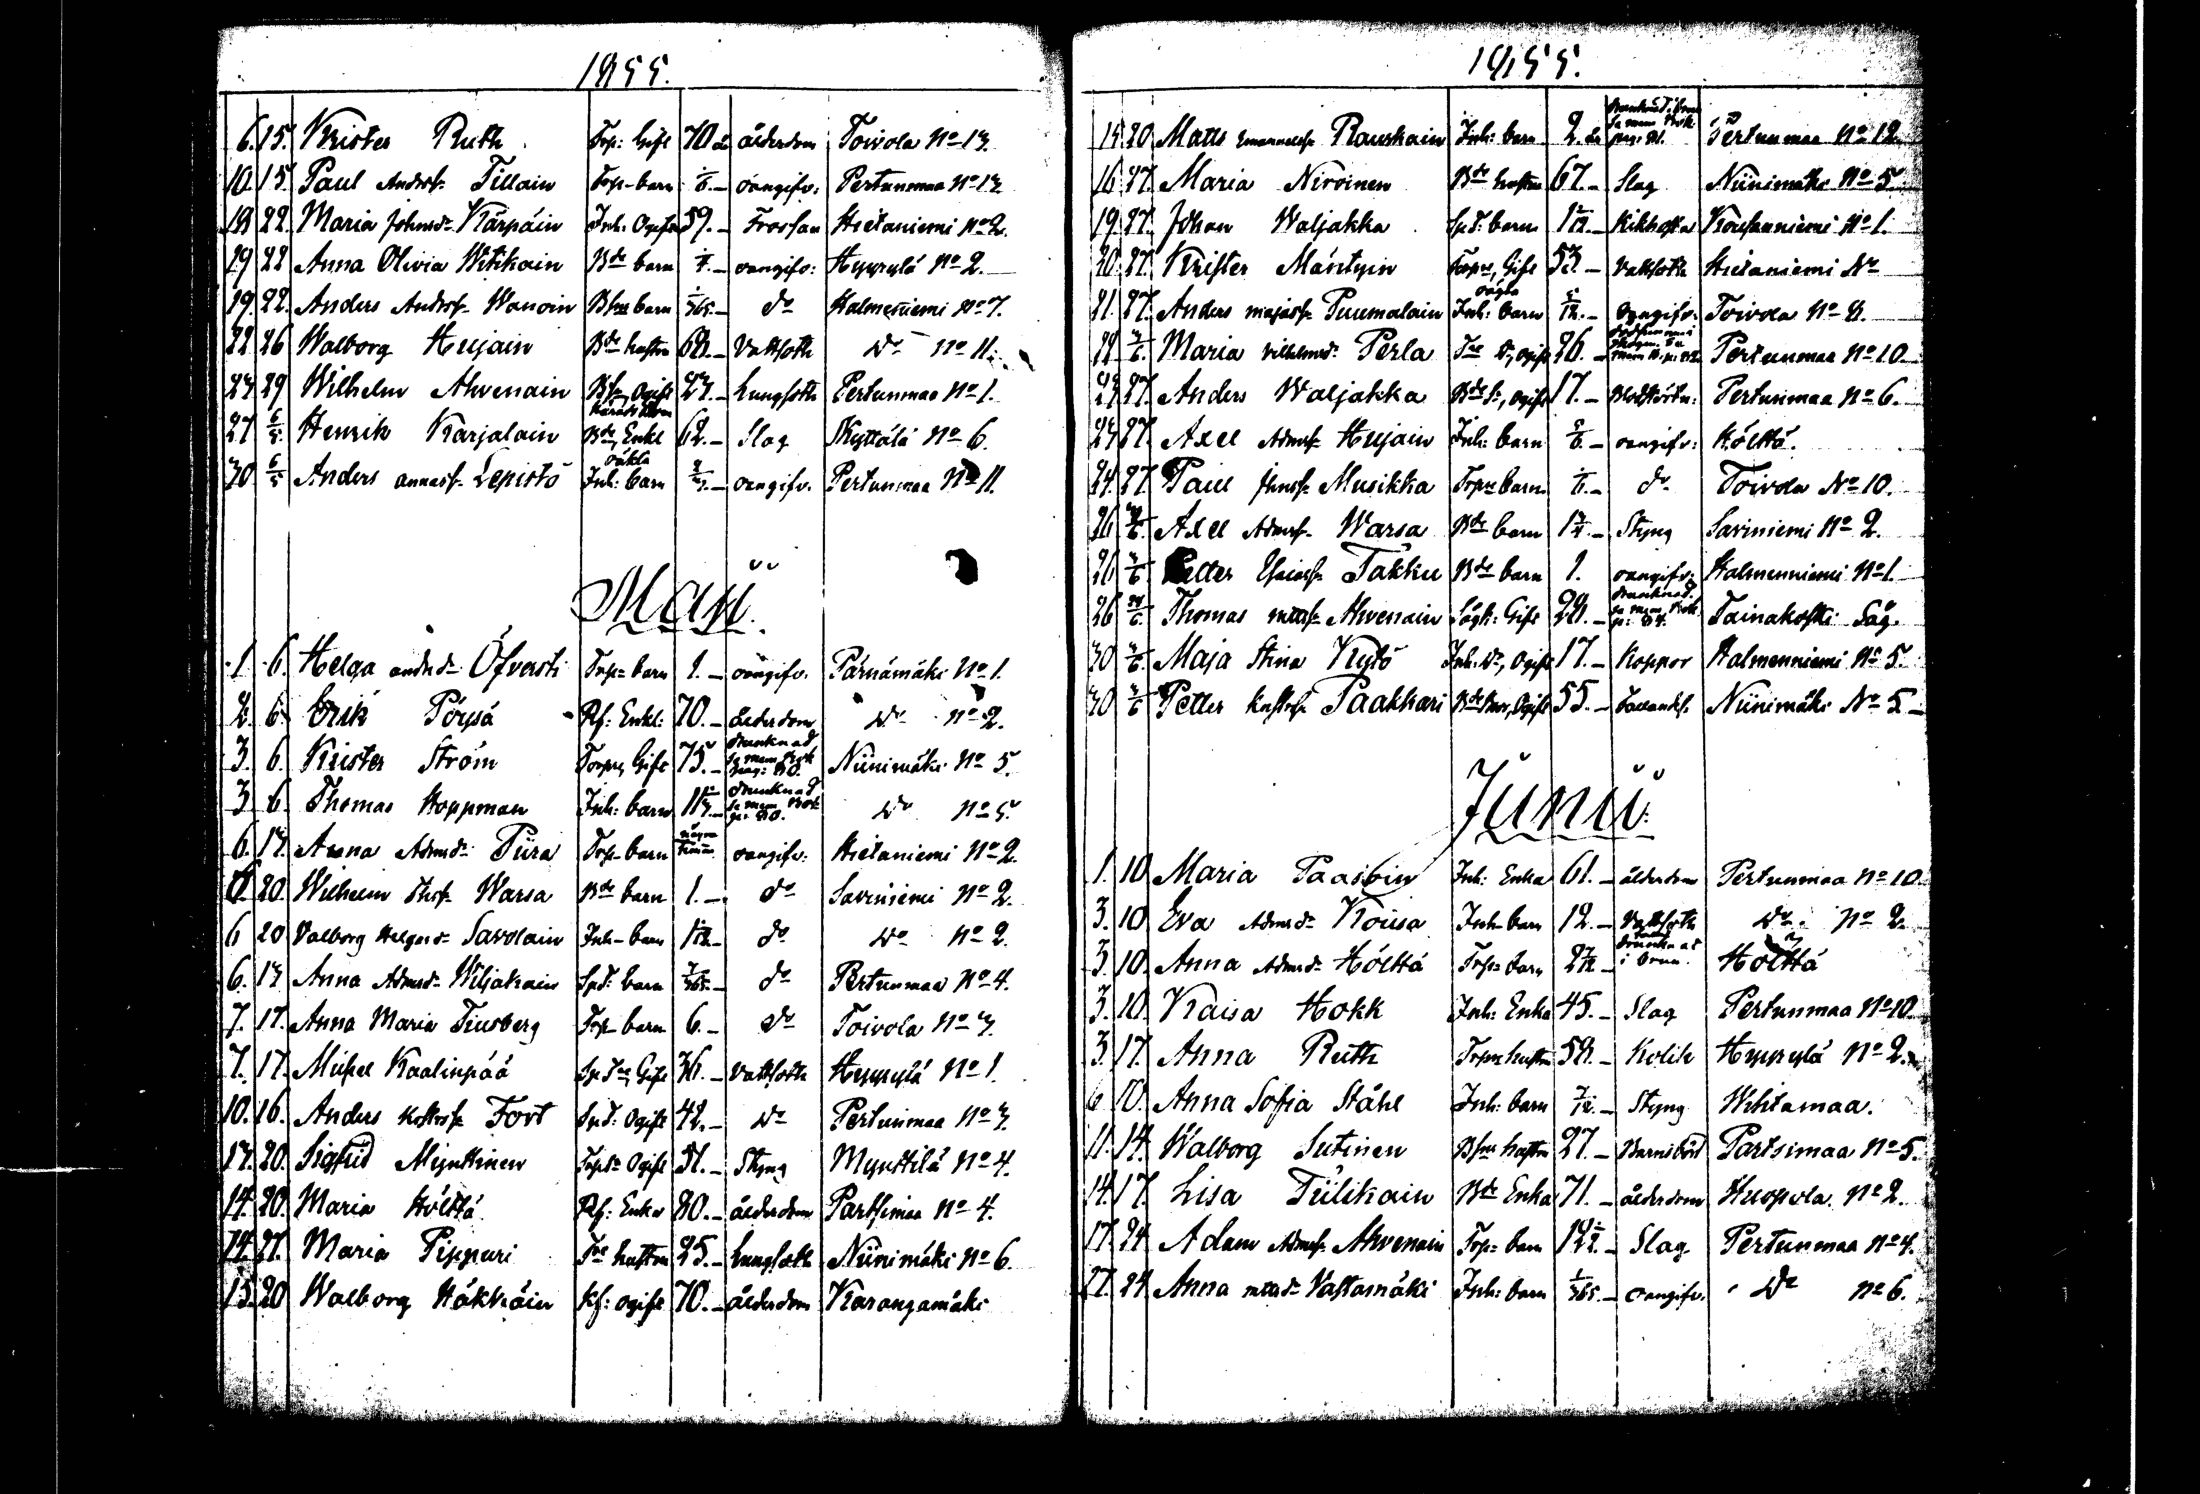 1855.
6. 15. Krister Ruth Torp: Gift 70 år ålderdom Toivola No 13.
10. 15. Paul Andrss. Tillain Torp- barn oangifv: Pertunmaa No 13
19 22. Maria Johnsd. Kärpäin Inh: Ogift 59. Frossan Hietaniemi No 2.
19 22 Anna Olivia Witikain Bde barn oangifv: Hyyrylä No 2.
19. 22. Anders Andrss. Wanoin barn 1/365. do Halmeniemi No 7.
22 26 Walborg Hujain Bde hustru 68. Vattsoth do No 11.
23 29 Wilhelm Ahvenain Ogift 23. Lungsoth Pertunmaa No 1.
27 6/5. Henrik Karjalain Bde, Enkl 62. Slag Kyttälä No 6.
30. 6/5 Anders annass. Lepistö oäkta Inh: barn oangifv. Pertunmaa No 11.
Maji.
1 6. Helga andrsd. Öfversti Torp= barn 1. oangifv. Pärnämäki No 1.
2. 6 Erik Pöysä Rf: Enkl: 70. ålderdom do No 2.
3. 6. Krister Ström Torpre, Gift 75. drunknad Niinimäki No 5.
3 6. Thomas Hoppman Inh: barn drunknad do No 5.
6. 13. Anna Admsd: Piira Torp- barn några timm. oangifv: Hietaniemi No 2.
20. Wilhelm Thss. Warsa Bde barn 1. do Saviniemi No 2.
6 20 Valborg Helgasd. Savolain Inh- barn do do No 2.
6. 13 Anna Admsd. Wiljakain barn 7/365. do Pertunmaa No 4.
7. 17. Anna Maria Tiusberg Torp- barn 6. do Toivola No 3.
7. 17. Mickel Kaalinpää Gift 36. Vattsoth Hyyrylä No 1.
10. 16. Anders Fort Ogift 42. do Pertunmaa No 3.
13. 20. Sigfrid Mynttinen Ogift 51. Styng Mynttilä No 4.
14. 20. Maria Hölttä Rf: Enka 80. ålderdom Partsimaa No 4.
14. 27. Maria Pippuri hustru 25. Lungsoth Niinimäki No 6.
15. 20 Walborg Häkkäin ogift 70. ålderdom Karangamäki
1855.
15 20 Matts Emanuelss. Rauskain Inh: barn 2. år Pertunmaa No 12.
16 27 Maria Niroinen Bde hustru 67. Slag Niinimäki No 5
19. 27. Johan Waljakka barn Kikhosta Koirhanniemi No 1.
20. 27. Krister Mäntyin Torpre, Gift 53. Vattsoth Hietaniemi No
21. 27. Anders majass. Puumalain oägta Inh: barn oangifv. Toivola No 8.
22 3/6. Maria vilhelmsd: Perla ogift 26. Pertunmaa No 10
23 27. Anders Waljakka ogift 17. Pertunmaa No 6.
23 27. Axel Admss. Hujain Inh: barn oangifv: Hölttä.
24. 27. Paul Musikka Torpre barn do Toivola No 10.
26 Axel Admss. Warsa Bde barn Styng Saviniemi No 2.
26 3/6 Petter Takku Bde barn 1. oangifv: Halmenniemi No 1.
26 Thomas mattss. Ahvenain Gift 28. drunknad Tainakoski Såg.
30 3/6. Maja Stina Kytö Ogift 17. Koppor Halmenniemi No 5.
30 3/6 Petter Paakkari 55. Niinimäki No 5.
Junii.
1. 10 Maria Paasoin Inh: Enka 61. ålderdom Pertunmaa No 10.
3. 10 Eva Admsd. Kousa Inh- barn 12. Vattsoth do No 2.
3. 10. Anna Admsd. Hölttä Torp= barn drunknat i brun. Höltta
3. 10. Kaisa Hokk Inh: Enka 45. Slag Pertunmaa No 10
3. 17. Anna Ruth Torpre hustru 58. Kolik Hyyrylä No 2.
6 10. Anna Sofia Ståhl Inh: barn 7/12. Styng Wihtamaa.
11. 14. Walborg Sutinen hustru 27. Barnsbörd Partsimaa No 5.
14. 17. Lisa Tiilikain Bde Enka 71. ålderdom Kuopola No 2.
17. 24 Adam Admss. Ahvenain Torp= barn Slag Pertunmaa No 4.
17. 24. Anna mattsd. Vastamäki Inh: barn 1/365. oangifv. do No 6.